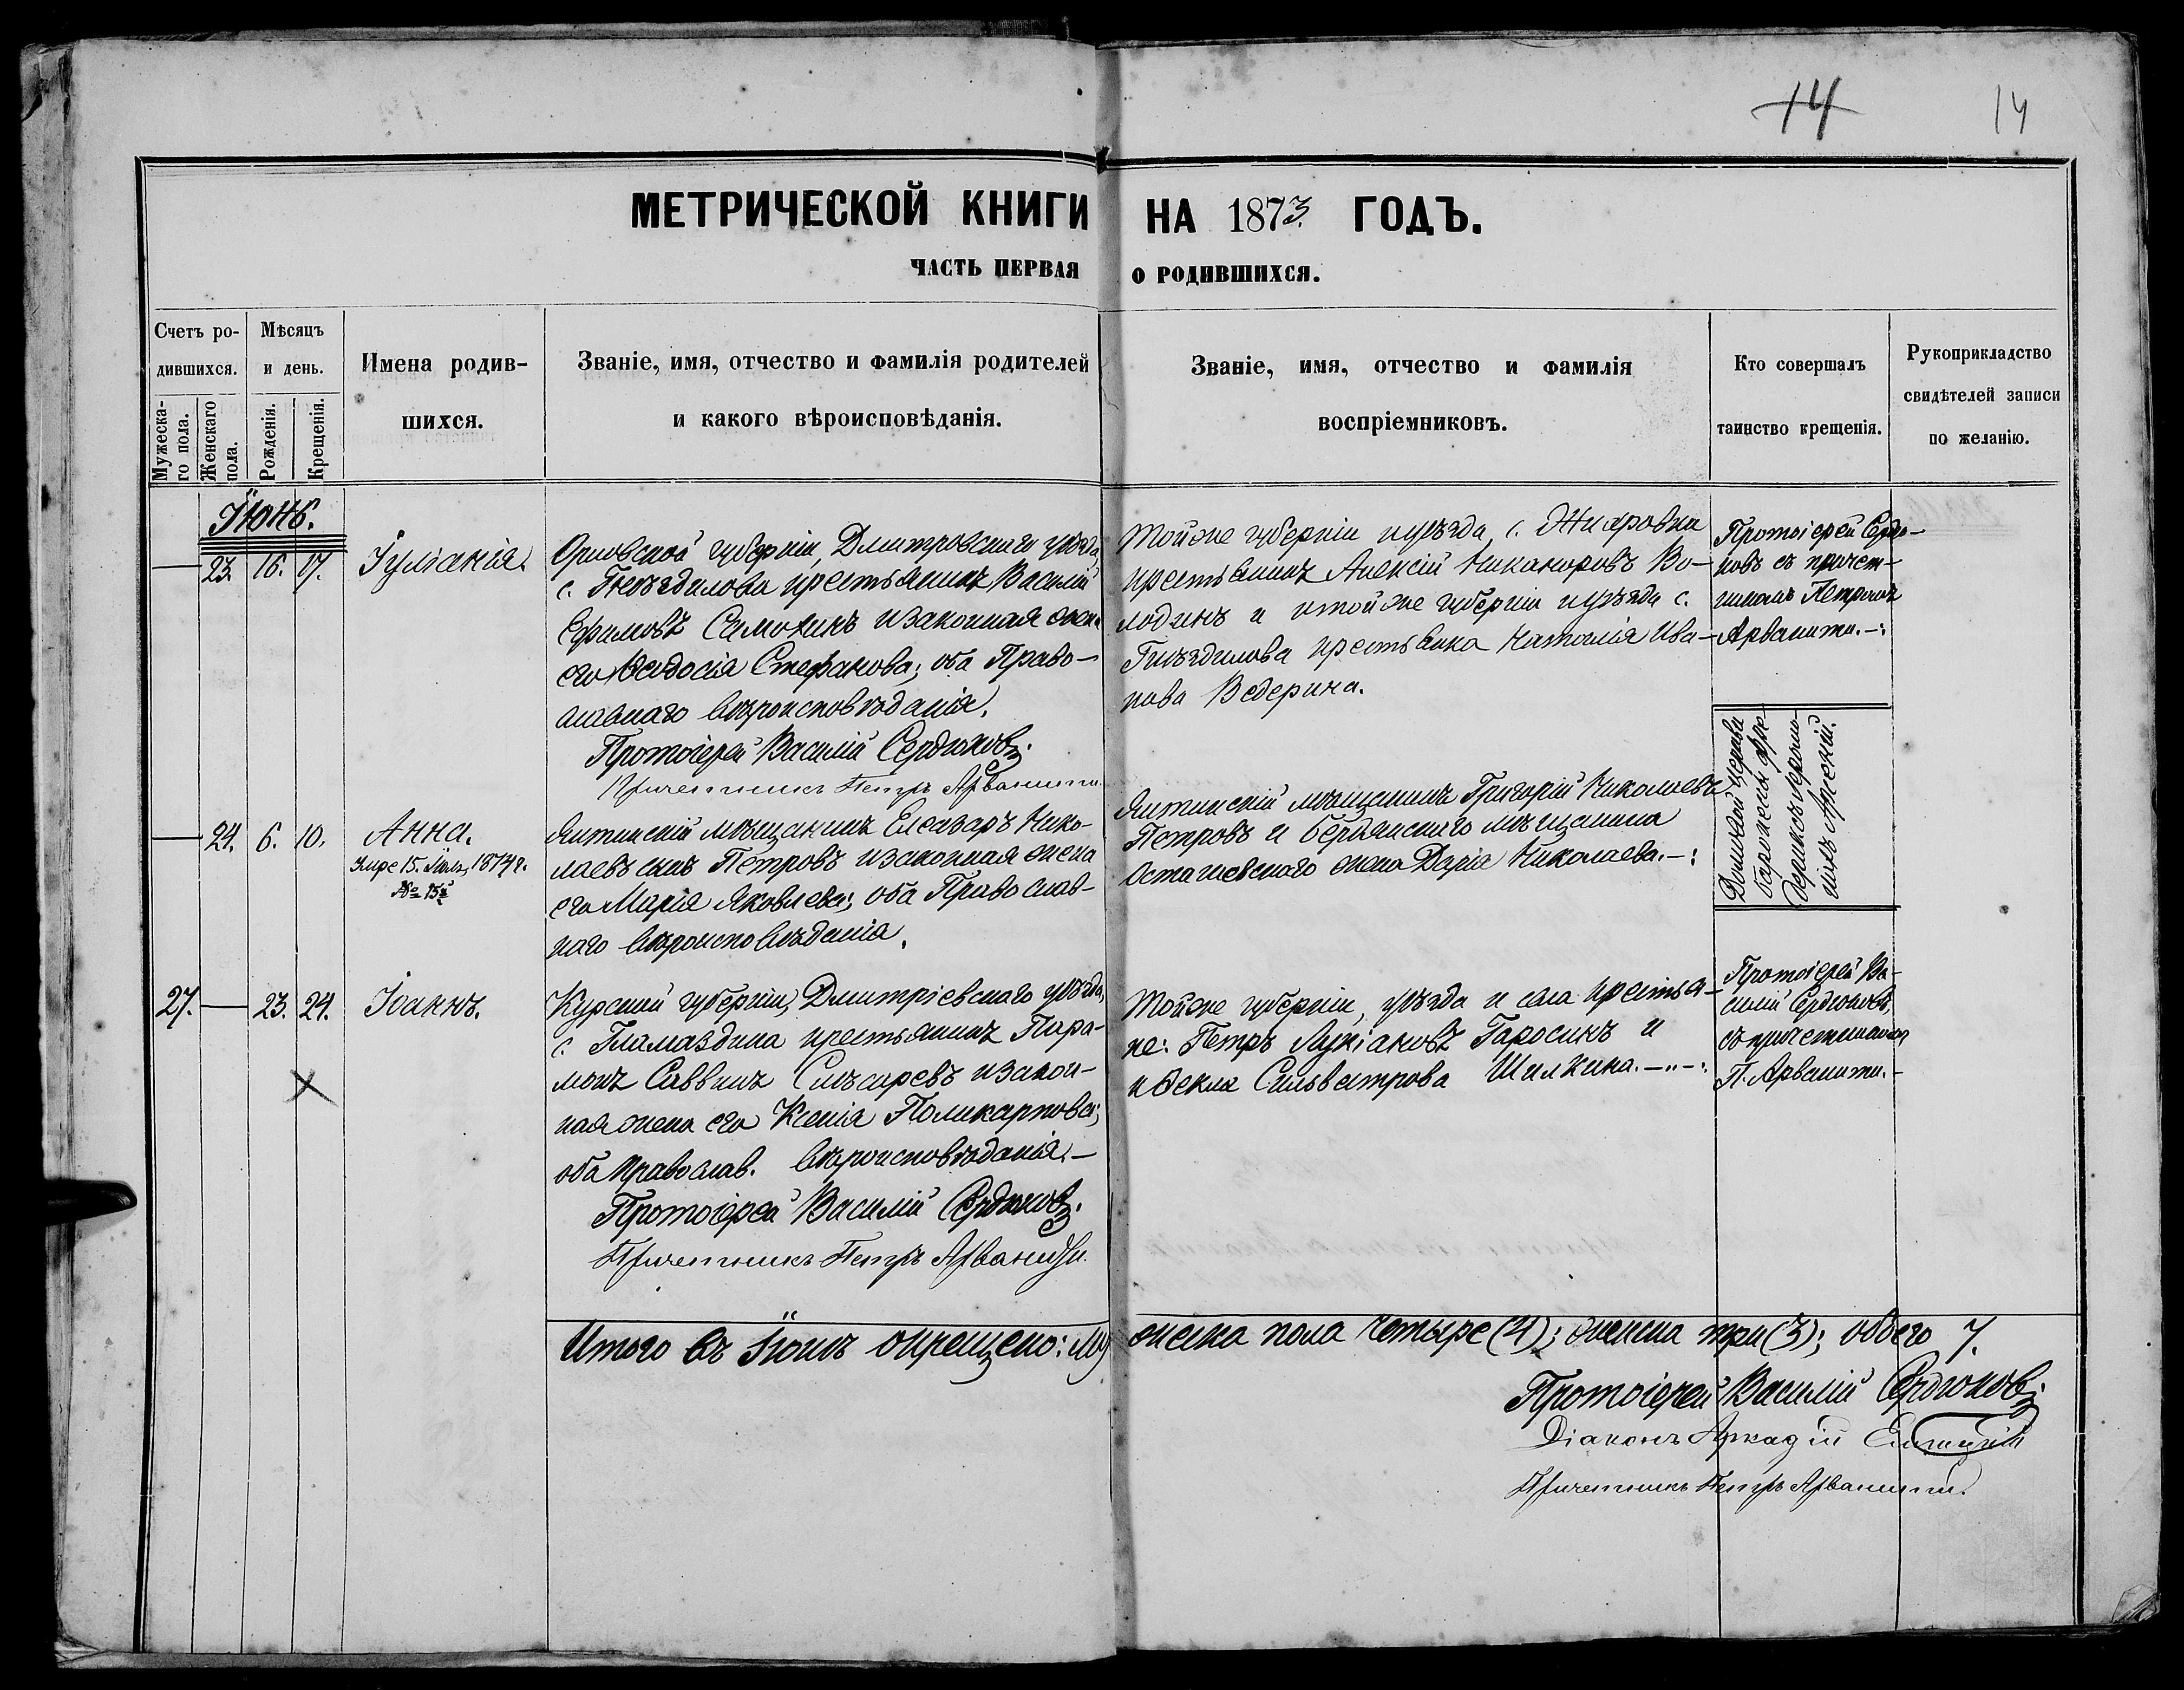 14
14
МЕТРИЧЕСКОЙ КНИГИ НА 1873 ГОДЪ.
ЧАСТЬ ПЕРВАЯ О РОДИВШИХСЯ.
Счетъ ро-
дившихся.
Мужеска-
го пола.
Женскаго
пола.
Мѣсяцъ
и день.
Рожденія.
Крещенія.
Имена родив-
шихся.
Званіе, имя, отчество и фамилія родителей
и какого вѣроисповѣданія.
Званіе, имя, отчество и фамилія
воспріемниковъ.
Кто совершалъ
таинство крещенія.
Рукоприкладство
свидѣтелей записи
по желанію.
Іюнь.
— 23. 16. 17. Іуліанія.
Орловской губерніи, Дмитровскаго уѣзда,
с. Гнѣздилова крестьянинъ Василій
Ефимовъ Самохинъ и законная жена
его Ѳеодосія Стефанова; оба Право-
славнаго вѣроисповѣданія.
Протоіерей Василій Сердюковъ.
Причетникъ Петръ Арванити.
Тойже губерніи и уѣзда, с. Жировка
крестьянинъ Алексій Никаноровъ Во-
лодинъ и тойже губерніи и уѣзда с.
Гнѣздилова крестьянка Наталія Ива-
нова Ведерина.
Протоіерей Сердю-
ковъ съ причет-
никомъ Петромъ
Арванити.—:
— 24. 6. 10. Анна.
Умре 15. Іюля, 1874 г.
№ 15й
Ялтинскій мѣщанинъ Елеазаръ Нико-
лаевъ сынъ Петровъ и законная жена
его Марія Яковлева; оба Православ-
наго вѣроисповѣданія.
Ялтинскій мѣщанинъ Григорій Николаевъ
Петровъ и Бердянскаго мѣщанина
Осташевскаго жена Дарія Николаева.—:
Домовой церкви
27. — 23. 24. Іоаннъ.
Курской губерніи, Дмитріевскаго уѣзда,
с. Гламаздина крестьянинъ Пара-
монъ Саввинъ Слѣсаревъ и закон-
ная жена его Ксенія Поликарпова;
оба православ. вѣроисповѣданія.—
Протоіерей Василій Сердюковъ.
Причетникъ Петръ Арванити.
Тойже губерніи, уѣзда и села крестья-
не: Петръ Лукіановъ Гаросинъ и
и Ѳекла Сильвестрова Шилкина.—"—:
Протоіерей Ва-
силій Сердюковъ,
съ причетникомъ
П. Арванити.—
Итого въ Іюнѣ окрещено: мужеска пола четыре (4); женска три (3); обоего 7.
Протоіерей Василій Сердюковъ.
Діаконъ Аркадій
Причетникъ Петръ Арванити.